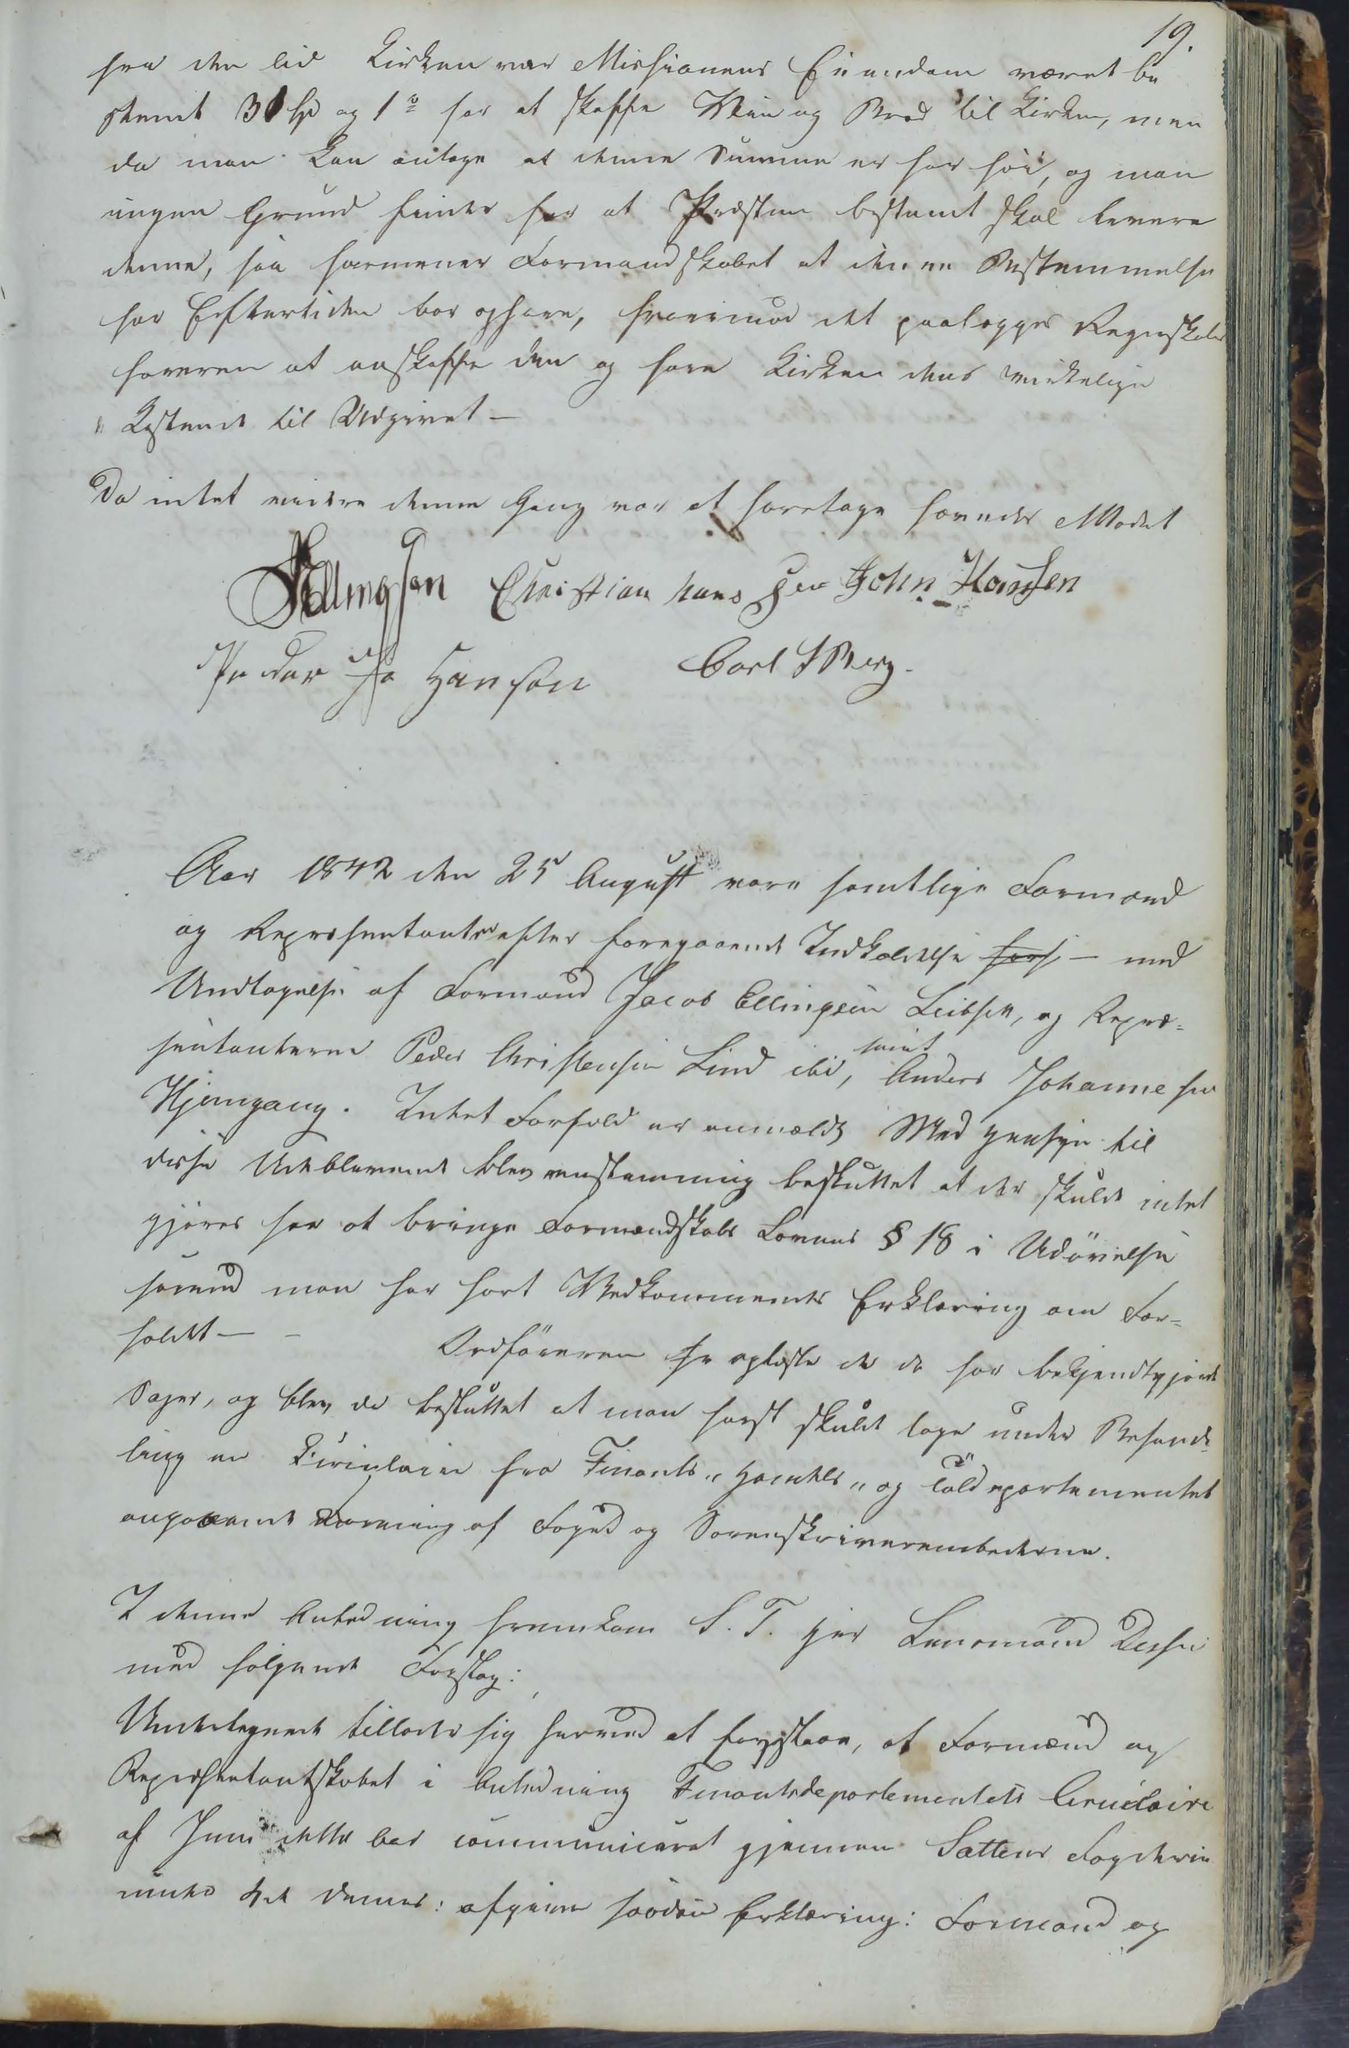 19.
fra den tid Kirken var Missionens Eiendom været be
stemt 31 Sp og 1 for at skaffe Viin og Brød til Kirken, men
da man kan antage at denne Summe er for høi, og man
ingen Grund finder for at Præsten bestemt skal levere
denne, saa formener Formandskabet at denne Bestemmelse
for Eftertiden bør ophøre, hvorimod det paalægges Regnskabs
føreren at anskaffe den og føre Kirken dens virkelige
" Kostende til Udgivet –
Da intet videre denne Gang var at foretage hævedes Mødet
Ellingsen Christian hans Sen John Hansen
Peder Jo Hansen Carl S Berg.
Aar 1842 den 25 August vare samtlige Formænd
og Repræsentanter efter foregaaende Indkaldelse – med
Undtagelse af Formand Jacob Ellingsen Leibsen, og Repræ-
sentanterne Peder Christensen Lind ibd, samt Anders Johannesen
Hjemgang. Intet Forfald er anmeldt. Med Hensyn til
disse Udeblevne blev enstemmig besluttet at der skulde intet
gjøres for at bringe Formandskabs Lovens § 18 i Udøvelse
førend man har hørt Vedkommendes Erklæring om For-
holdet – – Ordføreren oplæste de da for bekjendtgjorte
Sager, og blev da besluttet at man først skulde tage under Behand-
ling en Circulaire fra Finants " Handels " og Tolddepartementet
angaaende Lønning af Foged og Sorenskriverembederne.
I denne Anledning fremkom S. T. Hr Lensmand
med følgende Forslag:
Undertegnede tillader sig herved at foreslaae, at Formænd og
Repræsentantskabet i Anledning Finantsdepartementets Circulaire
af Juni dette Aar communiceret gjennem Sættens Fogderie
afgiver saadan Erklæring: Formand og